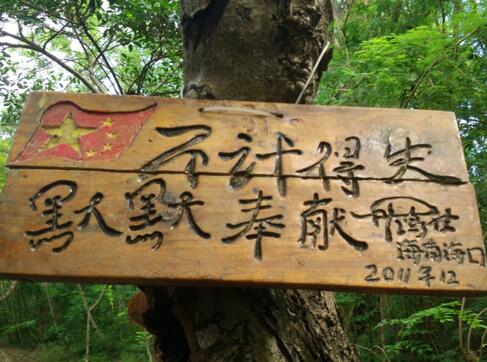 不计得失
默默奉献
海南海口
2011年12